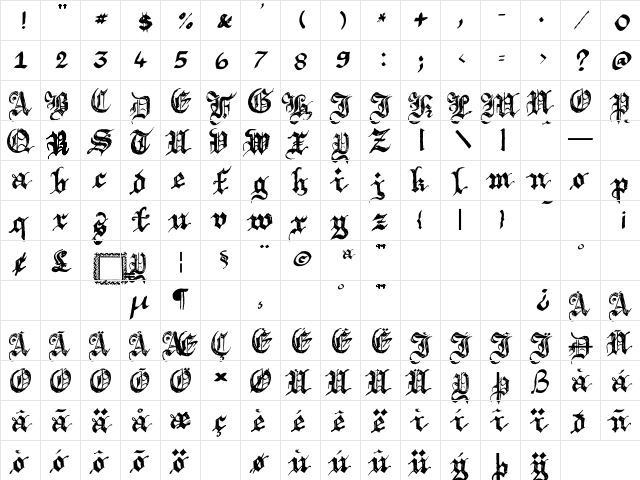 ! " # $ % & ' ( ) * + , - . / 0
1 2 3 4 5 6 7 8 9 : ; < = > ? @
A B C D E F G H I J K L M N O P
Q R S T U V W X Y Z [ \ ] —
a b c d e f g h i j k l m n o p
q r s t u v w x y z { | } ¡
¢ £ ¥ ¦ § ¨ © ª " °
µ ¶ ¸ ° " ¿ À Á
 à Ä Å Æ Ç È É Ê Ë Ì Í Î Ï Ð Ñ
Ò Ó Ô Õ Ö × Ø Ù Ú Û Ü Ý Þ ß à á
â ã ä å æ ç è é ê ë ì í î ï ð ñ
ò ó ô õ ö ø ù ú û ü ý þ ÿ